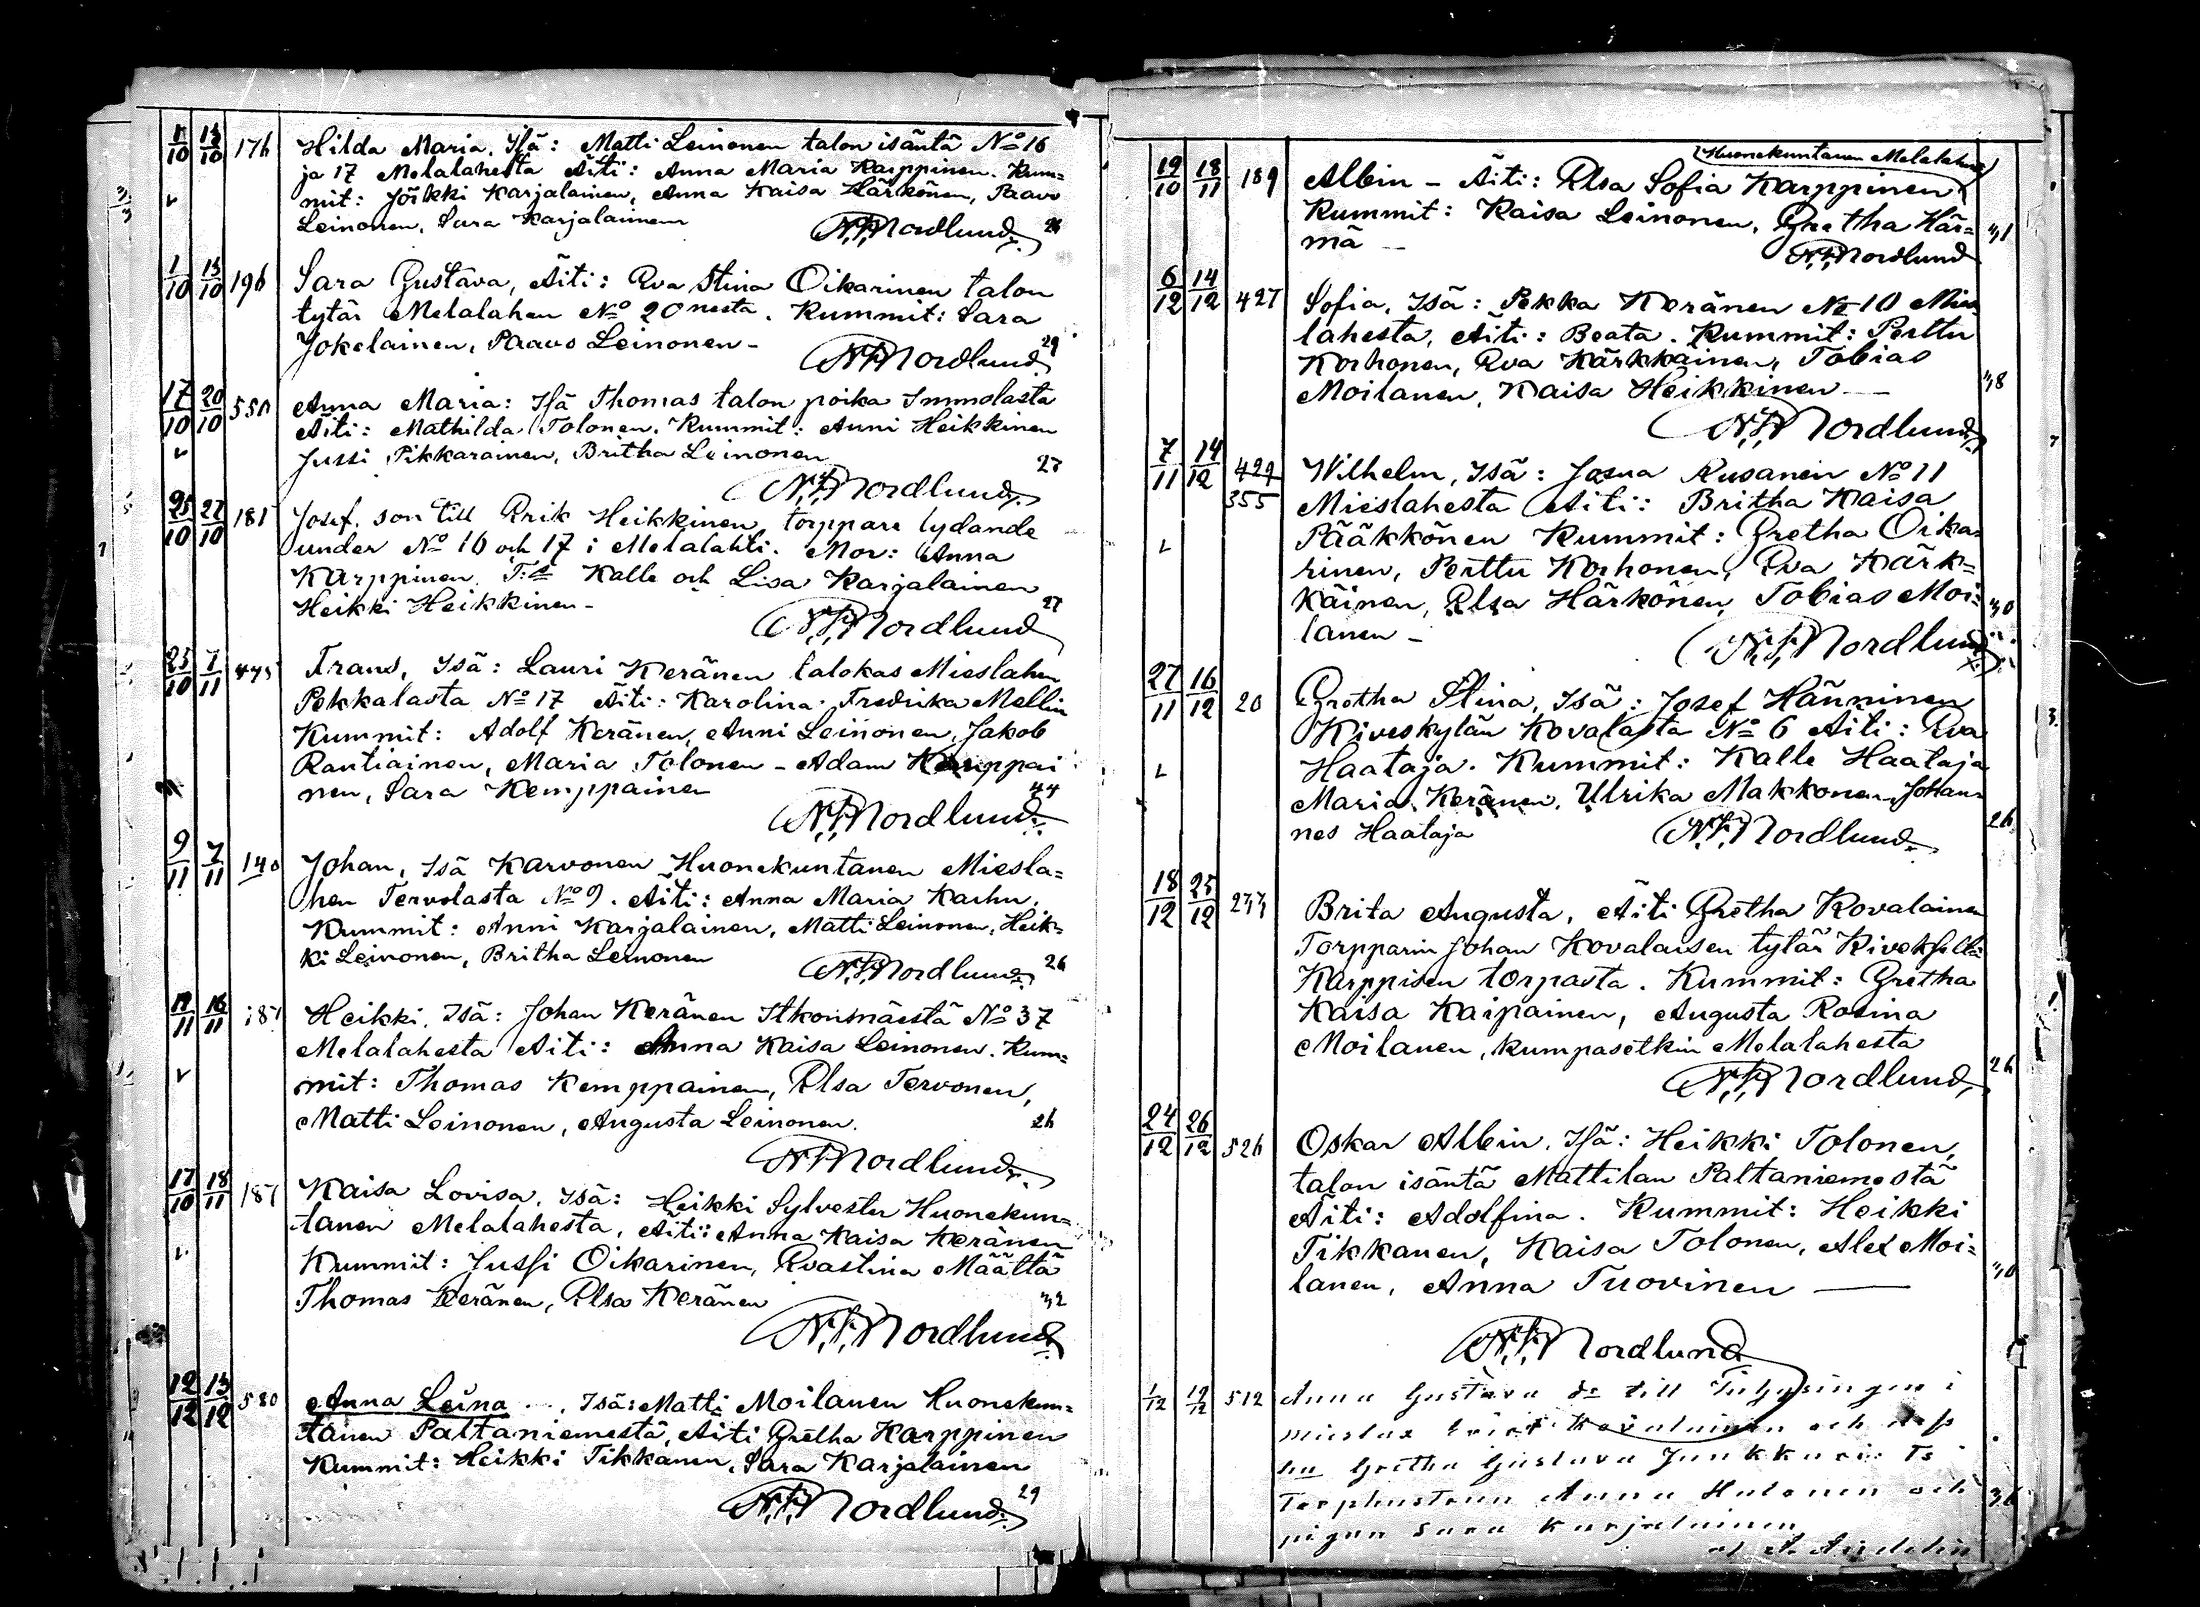 11/10 13/10 176 Hilda Maria, Isä: Matti Leinonen talon isäntä No 16
ja 17 Melalahesta Äiti: Anna Maria Karppinen. Kum=
mit: Jörkki Karjalainen, Anna Kaisa Härkönen, Paavo
Leinonen, Sara Karjalainen
N.F. Nordlund
1/10 13/10 196 Sara Gustava, Äiti: Eva Stina Oikarinen talon
tytär Melalahen No 20nesta. Kummit: Sara
Jokelainen, Paavo Leinonen -
N.F. Nordlund 29
17/10 20/10 550 Anna Maria: Isä Thomas talon poika Immolasta
Äiti: Mathilda Tolonen. Kummit: Anni Heikkinen
Jussi Pikkarainen, Britha Leinonen 27
N.F. Nordlund
25/10 27/10 181 Josef. son till Erik Heikkinen, torppare lydande
under No 16 och 17 i Melalahti. Mor: Anna
Karppinen. T:s Kalle och Lisa Karjalainen
Heikki Heikkinen - 27
N.F. Nordlund
23/10 7/11 475 Frans, Isä: Lauri Keränen talokas Mieslahen
Pekkalasta No 17 Äiti: Karolina Fredrika Mellin
Kummit: Adolf Keränen, Anni Leinonen, Jakob
Rantiainen, Maria Tolonen - Adam Kemppai
nen, Sara Kemppainen 44
N.F. Nordlund
9/11 7/11 140 Johan, Isä Karvonen Huonekuntanen Miesla=
hen Tervolasta No 9. Äiti: Anna Maria Karhu.
Kummit: Anni Karjalainen, Matti Leinonen, Heik-
ki Leinonen, Britha Leinonen 26
N.F. Nordlund
12/11 16/11 187 Heikki, Isä: Johan Keränen Itkonmäestä No 37
Melalahesta Äiti: Anna Kaisa Leinonen. Kum=
mit: Thomas Kemppainen, Elsa Tervonen,
Matti Leinonen, Augusta Leinonen. 26
N.F. Nordlund
17/10 18/11 187 Kaisa Lovisa, Isä: Heikki Sylvester Huonekun=
tanen Melalahesta, Äiti: Anna Kaisa Keränen
Kummit: Jussi Oikarinen, Evastina Määttä
Thomas Keränen, Elsa Keränen 32
N.F. Nordlund
12/12 13/12 580 Anna Leina, Isä: Matti Moilanen Huonekun=
tanen Paltaniemestä, Äiti Gretha Karppinen
Kummit: Heikki Tikkanen, Sara Karjalainen
N.F. Nordlund 29
Huonekuntanen Melalahesta
19/10 18/11 189 Albin - Äiti: Elsa Sofia Karppinen
Kummit: Kaisa Leinonen, Gretha Här=
mä - 31
N.F. Nordlund
6/12 14/12 427 Sofia, Isä: Pekka Keränen No 10 Mies
lahesta, Äiti: Beata. Kummit: Perttu
Korhonen, Eva Kärkkäinen, Tobias
Moilanen, Kaisa Heikkinen - 38
N.F. Nordlund
7/11 14/12 429 Wilhelm, Isä: Josua Rusanen No 11
355 Mieslahesta Äiti: Britha Kaisa
Pääkkönen Kummit: Gretha Oika=
rinen, Perttu Korhonen, Eva Kärk=
käinen, Elsa Härkönen, Tobias Moi=
lanen - 30
N.F. Nordlund
27/11 16/12 20 Gretha Stina, Isä: Josef Hänninen
Kiveskylän Kovalasta No 6 Äiti: Eva
Haataja. Kummit: Kalle Haataja
Maria Keränen, Ulrika Makkonen, Johan=
nes Haataja 26
N.F. Nordlund
18/12 25/12 233 Brita Augusta, Äiti Gretha Kovalainen
Torpparin Johan Kovalaisen tytär
Karppisen torpasta. Kummit: Gretha
Kaisa Kaipainen, Augusta Rosina
Moilanen, kumpasetkin Melalahesta
N.F. Nordlund 26
24/12 26/12 526 Oskar Albin, Isä: Heikki Tolonen,
talon isäntä Mattilan Paltaniemestä
Äiti: Adolfina. Kummit: Heikki
Tikkanen, Kaisa Tolonen, Alex Moi=
lanen, Anna Tuovinen 30
N.F. Nordlund
1/12 19/12 512 Anna Gustava dr till Inhysingen i
Kovalainen och
hu Gretha Gustava Junkkari: Ts
Torphustrun Anna Halonen och 36
pigan Sara Karjalainen